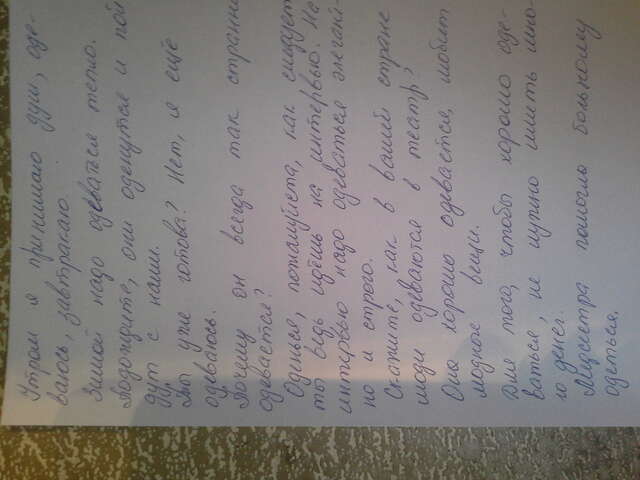 Утром я принимаю душ, оде-
ваюсь, завтракаю.
Зимой надо одеваться тепло.
Подождите, они оденутся и пой
дут с нами.
Ты уже готова? Нет, я ещё
одеваюсь.
Почему он всегда так странн
одевается?
Оденься, пожалуйста, как следует
ты ведь идёшь на интервью. На
интервью надо одеваться элегант-
но и строго.
Скажите, как в вашей стране
люди одеваются в театр?
Она хорошо одевается, любит
модные вещи.
Для того, чтобы хорошо оде-
ваться, не нужно иметь мно-
го денег.
Медсестра помогла больному
одеться.